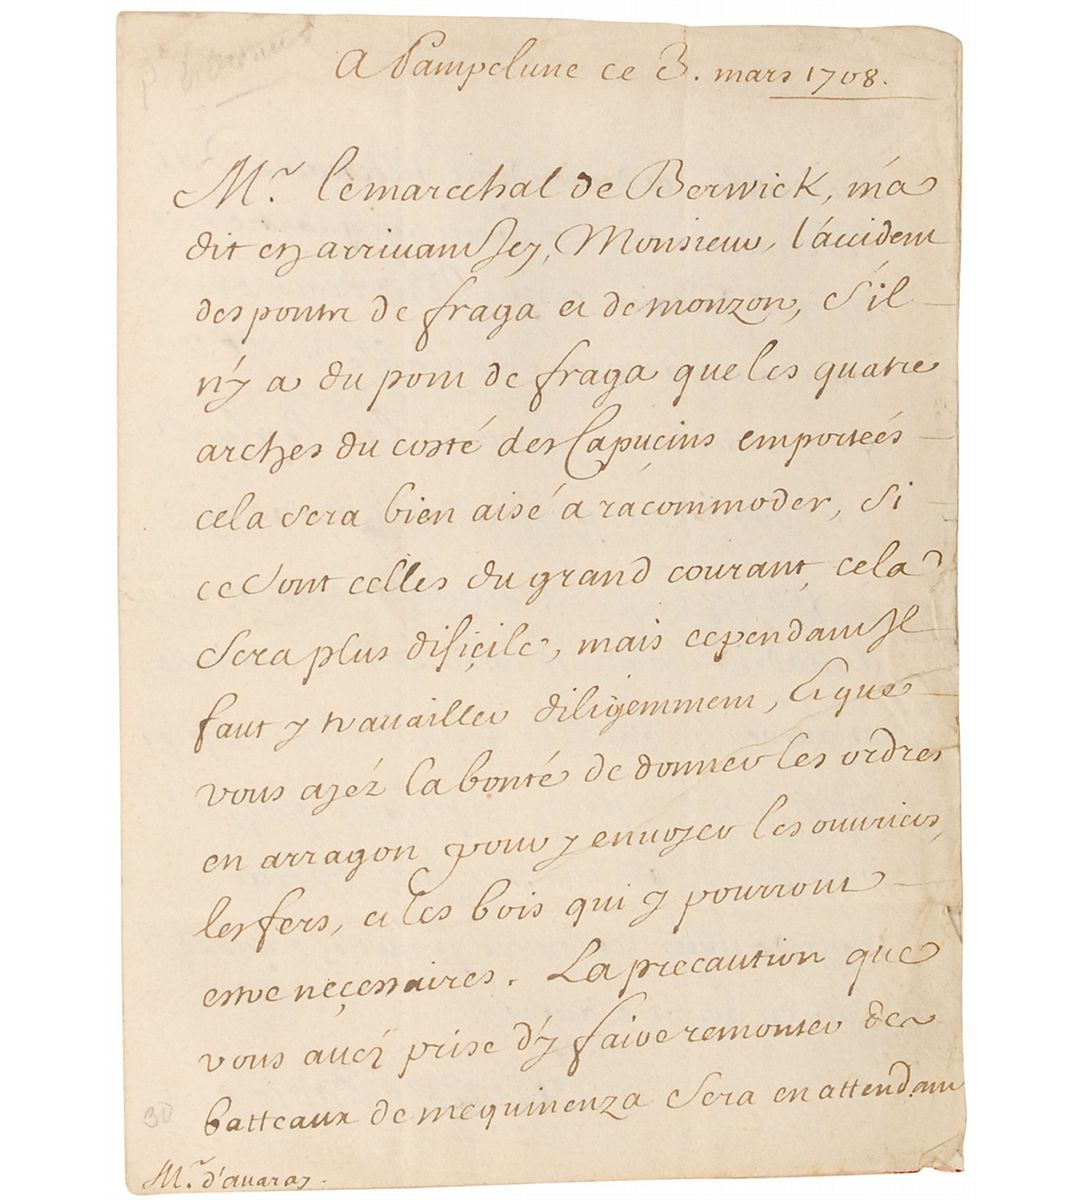 A Pampelune ce 3. mars 1708.
Mr. le marechal de Berwick, m'a
dit en arrivant Icy, Monsieur, l'accident
des ponts de fraga et de monzon, s'il
n'y a du pont de fraga que les quatre
arches du costé des Capucins emportées
cela sera bien aisé a racommoder, si
ce sont celles du grand courant, cela
sera plus dificile, mais cependant Il
faut y travailler diligemment, Et que
vous ayéz la bonté de donner les ordres
en arragon pour y envoyer les ouvriers,
les fers, et les bois qui y pourront
estre neçessaires. La precaution que
vous avéz prise d'y faire remonter des
batteaux de mequinenza sera en attendant
30
Mr. d'avaray.